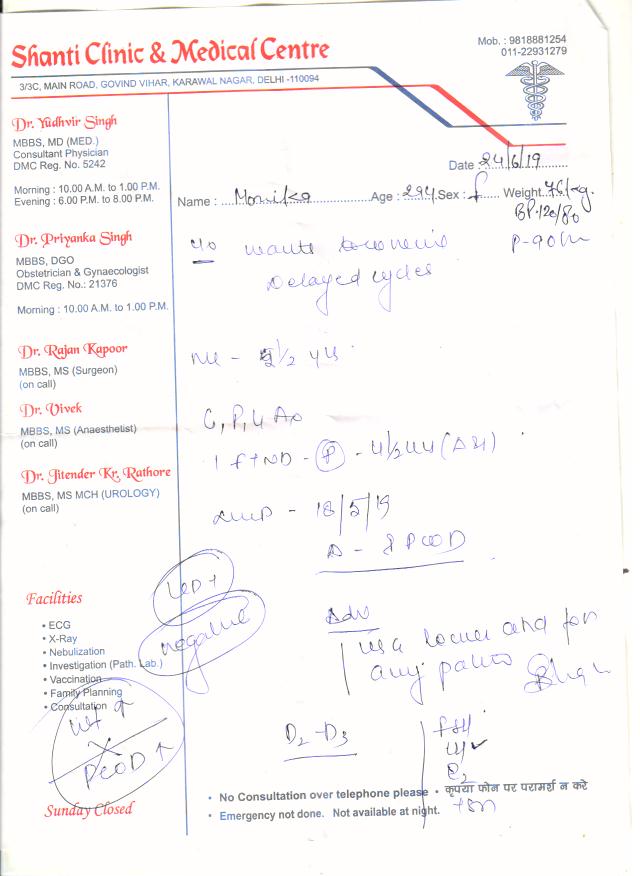 Shanti Clinic & Medical Centre
Mob. : 9818881254
011-22931279
3/3C, MAIN ROAD, GOVIND VIHAR, KARAWAL NAGAR, DELHI -110094
Dr. Yudhvir Singh
MBBS, MD (MED.)
Consultant Physician
DMC Reg. No. 5242
Morning : 10.00 A.M. to 1.00 P.M.
Evening : 6.00 P.M. to 8.00 P.M.
Date 24/6/19
Name : Monika Age : 29Y Sex : f Weight 76/kg.
BP-120/80
P-90/m
Dr. Priyanka Singh
MBBS, DGO
Obstetrician & Gynaecologist
DMC Reg. No.: 21376
Morning : 10.00 A.M. to 1.00 P.M.
wants
Delayed cycles
Dr. Rajan Kapoor
MBBS, MS (Surgeon)
(on call)
Dr. Vivek
MBBS, MS (Anaesthetist)
(on call)
Dr. Jitender Kr. Rathore
MBBS, MS MCH (UROLOGY)
(on call)
1 FTND -
LMP - 18/5/19
PCOD
Facilities
• ECG
• X-Ray
• Nebulization
• Investigation (Path. Lab.)
• Vaccination
• Family Planning
• Consultation
negative
Adv
for
any
D2-D3
FSH
E2
TSH
wt ↑
PCOD ↑
Sunday Closed
• No Consultation over telephone please • कृपया फोन पर परामर्श न करे
• Emergency not done. Not available at night.